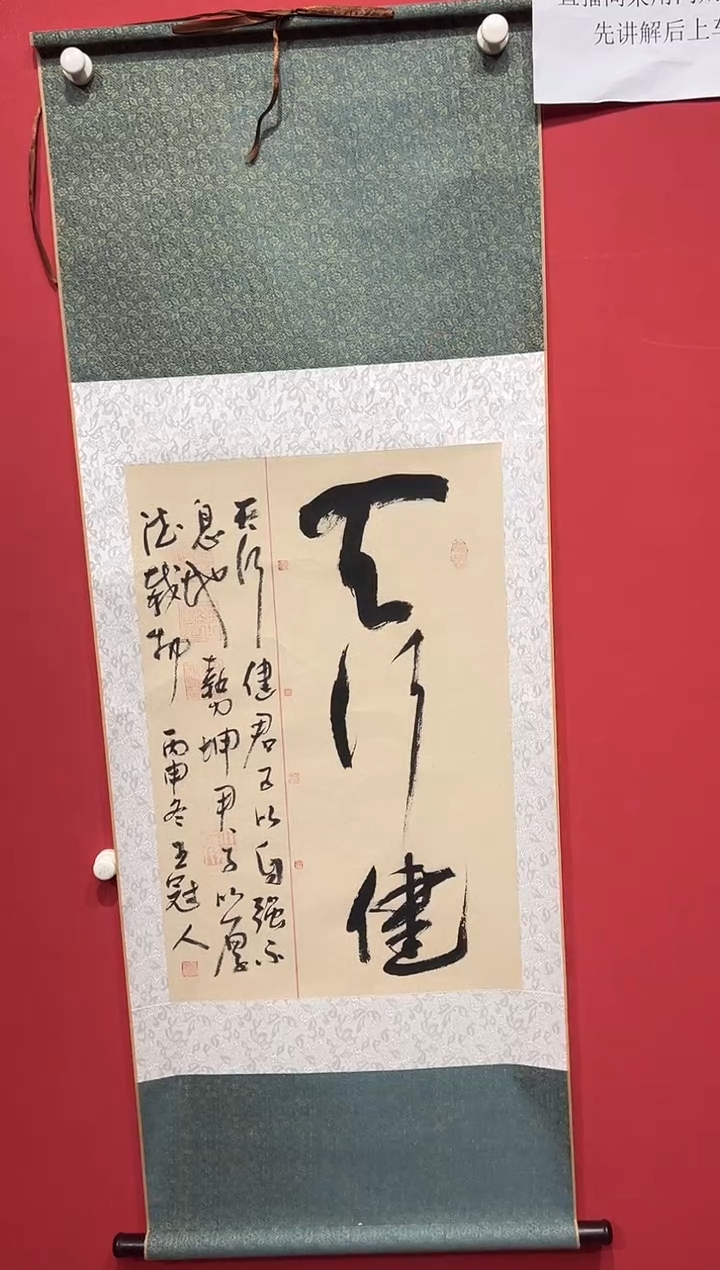 直播间采用
先讲解后上车
天行健
天行健君子以自强不
息地勢坤君子以厚
德載物 丙申冬王冠人